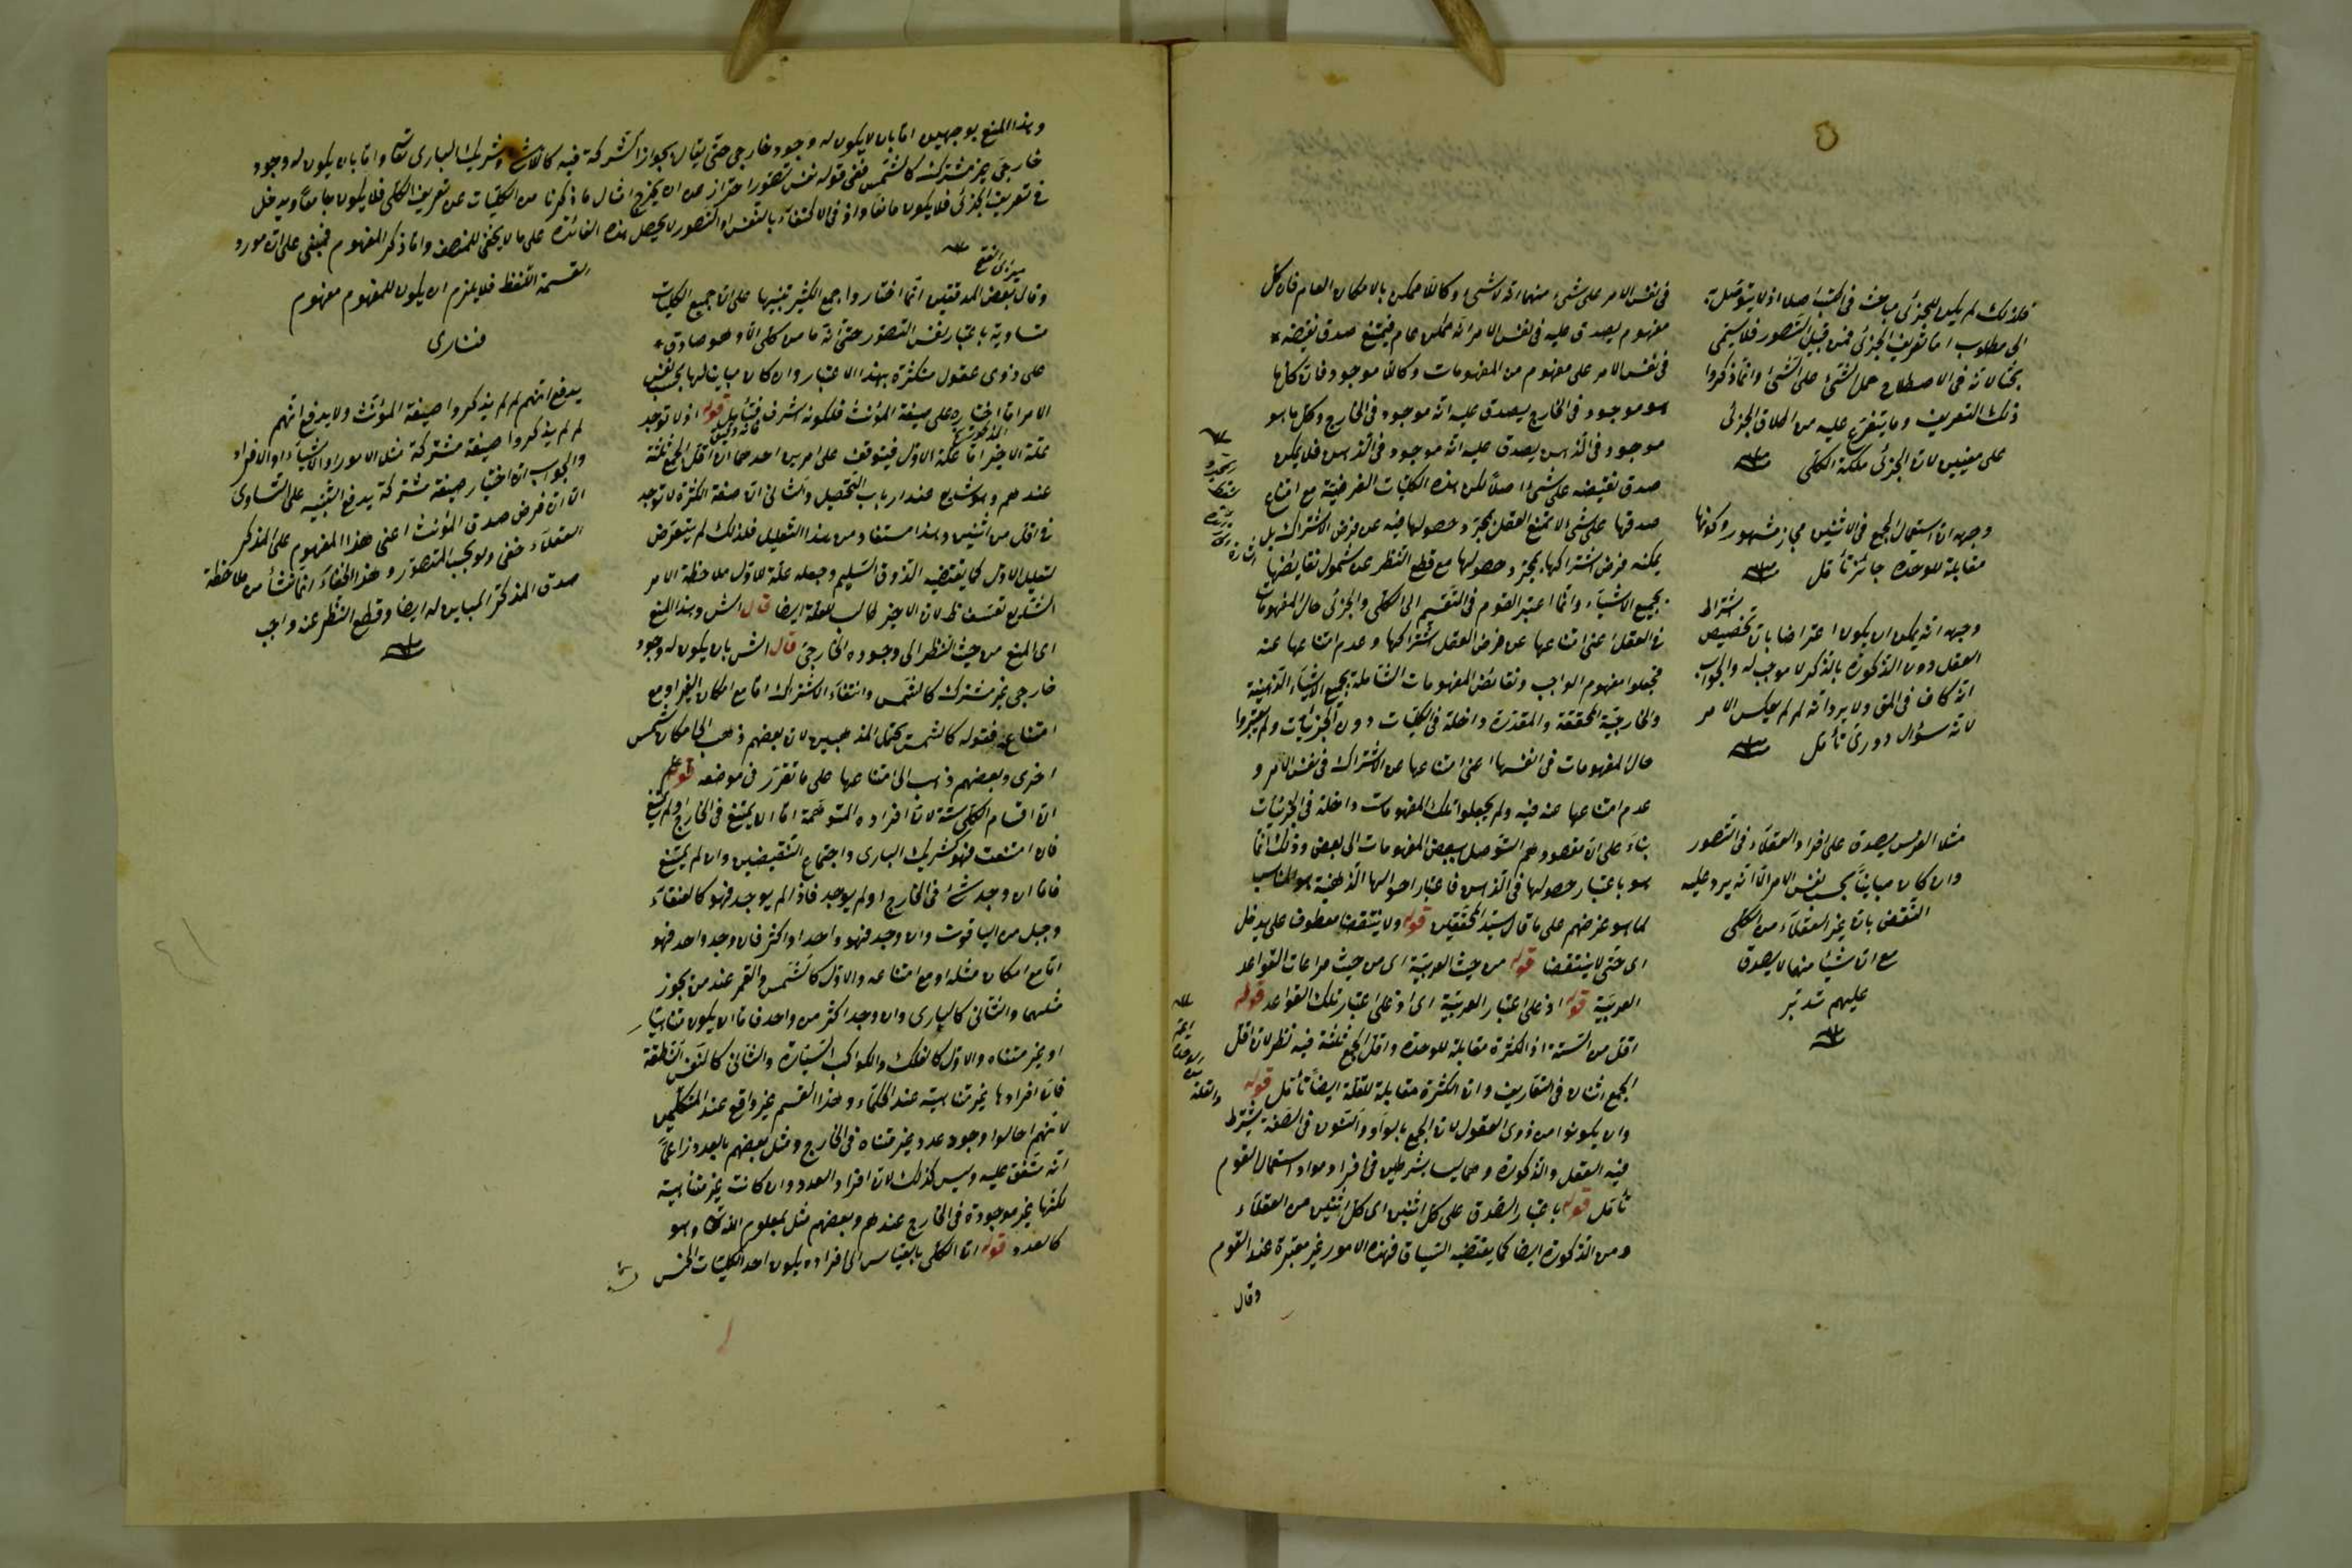 في نفس الامر على شئ منهما انه لاشئ وكاللاممكن بالامكان العام فان كل
مفهوم يصدق عليه في نفس الامر انه ممكن عام فيمتنع صدق نقيضه
في نفس الامر على مفهوم من المفهومات وكاللاموجود فان كل ما
هو موجود في الخارج يصدق عليه انه موجود في الخارج وكل ما هو
موجود في الذهن يصدق عليه انه موجود في الذهن فلا يمكن
صدق نقيضه على شئ اصلا لكن هذه الكليات الفرضية مع امتناع
صدقها على شئ لا يمتنع العقل بمجرد حصولها فيه عن فرض الاشتراك بل
يمكنه فرض اشتراكها بمجرد حصولها مع قطع النظر عن شمول نقايضها
بجميع الاشياء وانما اعتبر القوم في التقسيم الى الكلي والجزئي حال المفهومات
في العقل اعنى امتناعها عن فرض العقل اشتراكها وعدم امتناعها عنه
فجعلوا مفهوم الواجب ونقائض المفهومات الشاملة بجميع الاشياء الذهنية
والخارجية المحققة والمقدرة داخلة في الكليات دون الجزئيات ولم يعتبروا
حال المفهومات في انفسها اعنى امتناعها عن الاشتراك في نفس الامر و
عدم امتناعها عنه فيه ولم يجعلوا تلك المفهومات داخلة في الجزئيات
بناء على ان مقصودهم التوصل ببعض المفهومات الى بعض وذلك انما
هو باعتبار حصولها في الذهن فاعتبار احوالها الذهنية هو المناسب
لما هو غرضهم على ما قال سيد المحققين قوله ولا ينتقضا معطوف على يدخل
اى حتى لا ينتقضا قوله من حيث العربية اى من حيث مراعات القواعد
العربية قوله اذ على اعتبار العربية اى اذ على اعتبار تلك القواعد قوله
اقل من الستة اذ الكثرة مقابلة للوحدة واقل الجمع ثلثة فيه نظر لان اقل
الجمع اثنان في التعاريف وان الكثرة مقابلة للقلة ايضا تأمل قوله
وان يكونوا من ذوى العقول لان الجمع بالواو والنون في الصفة يشترط
فيه العقل والذكورة وهما ليسا بشرطين في افراد مواد استعمال القوم
تأمل قوله باعتبار الصدق على كل اثنين اى كل اثنين من العقلاء
ومن الذكورة ايضا كما يقتضيه السياق فهذه الامور غير معتبرة عند القوم
وقال
فلذلك لم يكن للجزئي مباحث في الكتب اصلا اذ لا يتوصل به
الى مطلوب اما تعريف الجزئي فمن قبيل التصور فلا يسمى
بحثا لانه في الاصطلاح حمل الشئ على الشئ وانما ذكروا
ذلك التعريف وما يتفرع عليه من اطلاق الجزئي
على معنيين لان الجزئي ملكة الكلي
وجهه ان استعمال الجمع في الاثنين مجاز مشهور وكونها
مقابلة للوحدة جائز تأمل
وجهه انه يمكن ان يكون اعتراضا بان تخصيص اشتراط
العقل دون الذكورة بالذكر لا موجب له والجواب
انه كاف في المق ولا يرد انه لم لم يعكس الامر
لانه سؤال دوري تأمل
مثلا الفرس يصدق على افراد العقلاء في التصور
وان كان مباينا بحسب نفس الامر الا انه يرد عليه
النقض بان غير العقلاء من الكلي
مع ان شيئا منها لا يصدق
عليهم تدبر
وهذا المنع بوجهين اما بان لا يكون له وجود خارجي حتى يقال بجواز الشركة فيه كاللاشئ وشريك البارى تعالى واما بان يكون له وجود
خارجي غير مشترك كالشمس ففي قوله نفس تصور احتراز عن ان يخرج امثال ما ذكرنا من الكليات عن تعريف الكلي فلا يكون جامعا ويدخل
في تعريف الجزئي فلا يكون مانعا واذ في الاكتفاء بالنفس او التصور لا يحصل هذه الفائدة على ما لا يخفى للمنصف واما ذكر المفهوم فمبني على ان مورد
القسمة اللفظ فلا يلزم ان يكون للمفهوم مفهوم
فنارى
مير ابى الفتح
وقال بعض المدققين انما اختاروا جمع الكثير تنبيها على ان جميع الكليات
متساوية باعتبار نفس التصور حتى انه ما من كلي الا وهو صادق
على ذوى عقول متكثرة بهذا الاعتبار وان كان مباينا لها بحسب نفس
الامر اما اختياره على صيغة المؤنث فلكونه اشرف فتأمل قوله اذ لا توجد
علة الاخير اما علة الاول فيتوقف على امرين احدهما ان اقل الجمع ثلثة
عندهم وهو شايع عند ارباب التحصيل والثاني ان صفة الكثرة لا توجد
في اقل من اثنين وهذا مستفاد من هذا التعليل فلذلك لم يتعرض
لتعليل الاول كما يقتضيه الذوق السليم وجعله علة للاول ملاحظة الامر
الشايع تعسف ظ لان الاخير طالب للعلة ايضا قال الش وهذا المنع
اى المنع من حيث النظر الى وجوده الخارجي قال الش بان يكون له وجود
خارجي غير مشترك كالشمس وانتفاء الاشتراك اما مع امكان الغير او مع
امتناعه فقوله كالشمس يحتمل المذهبين لان بعضهم ذهب الى امكان شمس
اخرى وبعضهم ذهب الى امتناعها على ما تقرر في موضعه قوله
ان اقسام الكلي ستة لان افراده المتوهمة اما ان يمتنع في الخارج او لم يمتنع
فان امتنعت فهو كشريك البارى واجتماع النقيضين وان لم يمتنع
فاما ان وجد شئ في الخارج او لم يوجد فاذا لم يوجد فهو كالعنقاء
وجبل من الياقوت وان وجد فهو واحد او اكثر فان وجد واحد فهو
اما مع امكان مثله او مع امتناعه والاول كالشمس والقمر عند من يجوز
مثلهما والثاني كالبارى وان وجد اكثر من واحد فاما ان يكون متناهيا
او غير متناه والاول كالفلك والكواكب السيارة والثاني كالنفس الناطقة
فان افرادها غير متناهية عند الحكماء وهذا القسم غير واقع عند المتكلمين
لانهم احالوا وجود عدد غير متناه في الخارج ومثل بعضهم بالعدد زاعما
انه متفق عليه وليس كذلك لان افراد العدد وان كانت غير متناهية
لكنها غير موجودة في الخارج عندهم وبعضهم مثل بمعلوم الله تعالى وهو
كالعدد قوله ان الكلي بالقياس الى افراده يكون احد الكليات الخمس
يدفع انهم لم لم يذكروا صيغة المؤنث ولا يدفع انهم
لم لم يذكروا صيغة مشتركة مثل الامور او الاشياء او الافراد
والجواب ان اختيار صيغة مشتركة يدفع التنبيه على التساوى
الا ان فرض صدق المؤنث اعنى هذا المفهوم على المذكر
العقلاء خفي ولو بحسب التصور وهذا الخفاء انما نشأ من ملاحظة
صدق المذكر المباين له ايضا وقطع النظر عنه واجب